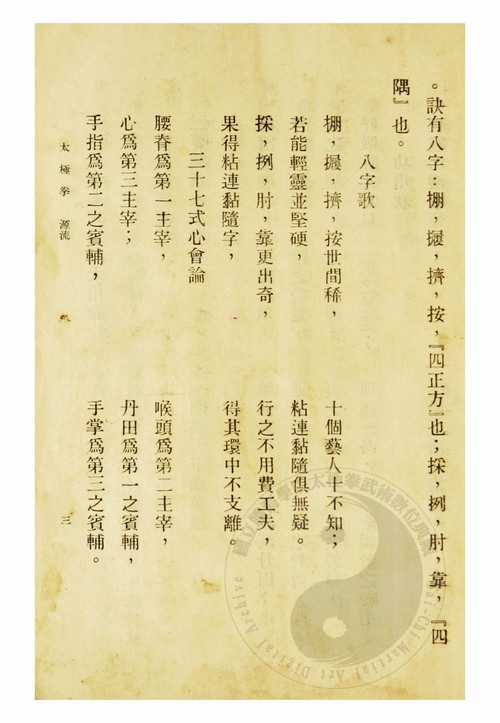 。訣有八字：掤，擺，擠，按，『四正方』也；採，挒，肘，靠，『四
隅』也。
八字歌
掤，擺，擠，按世間稀， 十個藝人十不知；
若能輕靈並堅硬， 粘連黏隨俱無疑。
採，挒，肘，靠更出奇， 行之不用費工夫，
果得粘連黏隨字， 得其環中不支離。
三十七式心會論
腰脊爲第一主宰， 喉頭爲第二主宰，
心爲第三主宰； 丹田爲第一之賓輔，
手指爲第二之賓輔， 手掌爲第三之賓輔。
太極拳 源流 三
Tai-Chi-Martial Art Digital Archive